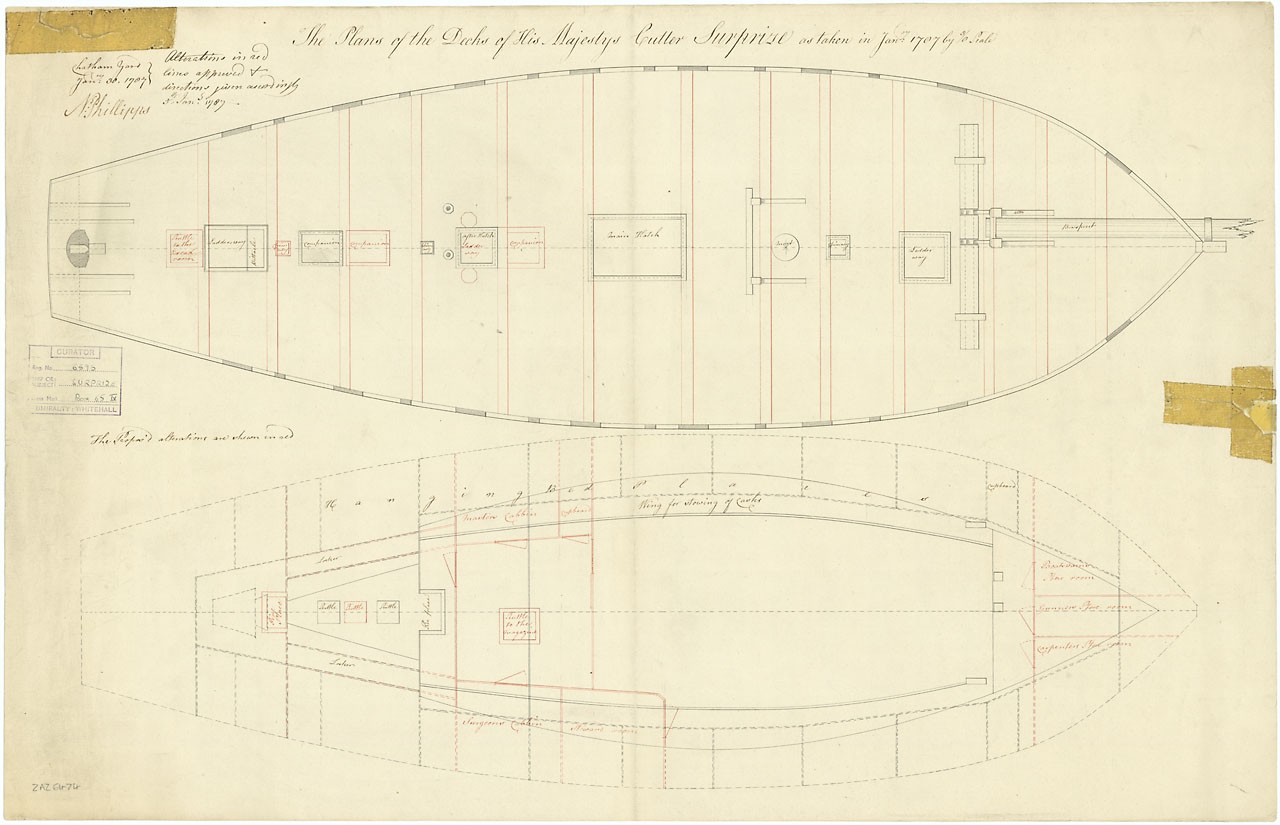 The Plans of the Decks of His Majestys Cutter Surprize as taken in Jany. 1787 by
Chatham Yard
Jany. 30. 1787
N Phillipps
Alterations in red
lines approved &
directions given accordingly
Jany. 1787
Scuttle to the Bread room
Ladderway
companion
companion
after Hatch
Ladder way
companion
main Hatch
Ladder way
Bowsprit
CURATOR
Reg. No. 6473
SUBJECT SURPRIZE
Box 65 IV
ADMIRALTY WHITEHALL
The Propos'd alterations are shewn in red
Hanging Bed Places
Wing for Stowing of Casks
cupboard
Masters Cabbin
cupboard
Locker
Fire Place
Scuttle
Scuttle
Scuttle
Fire Place
Scuttle to the Magazine
Locker
Boatswains Store room
Gunners Store room
Carpenters Store room
Surgeons Cabbin
Steward's room
ZAZ6474